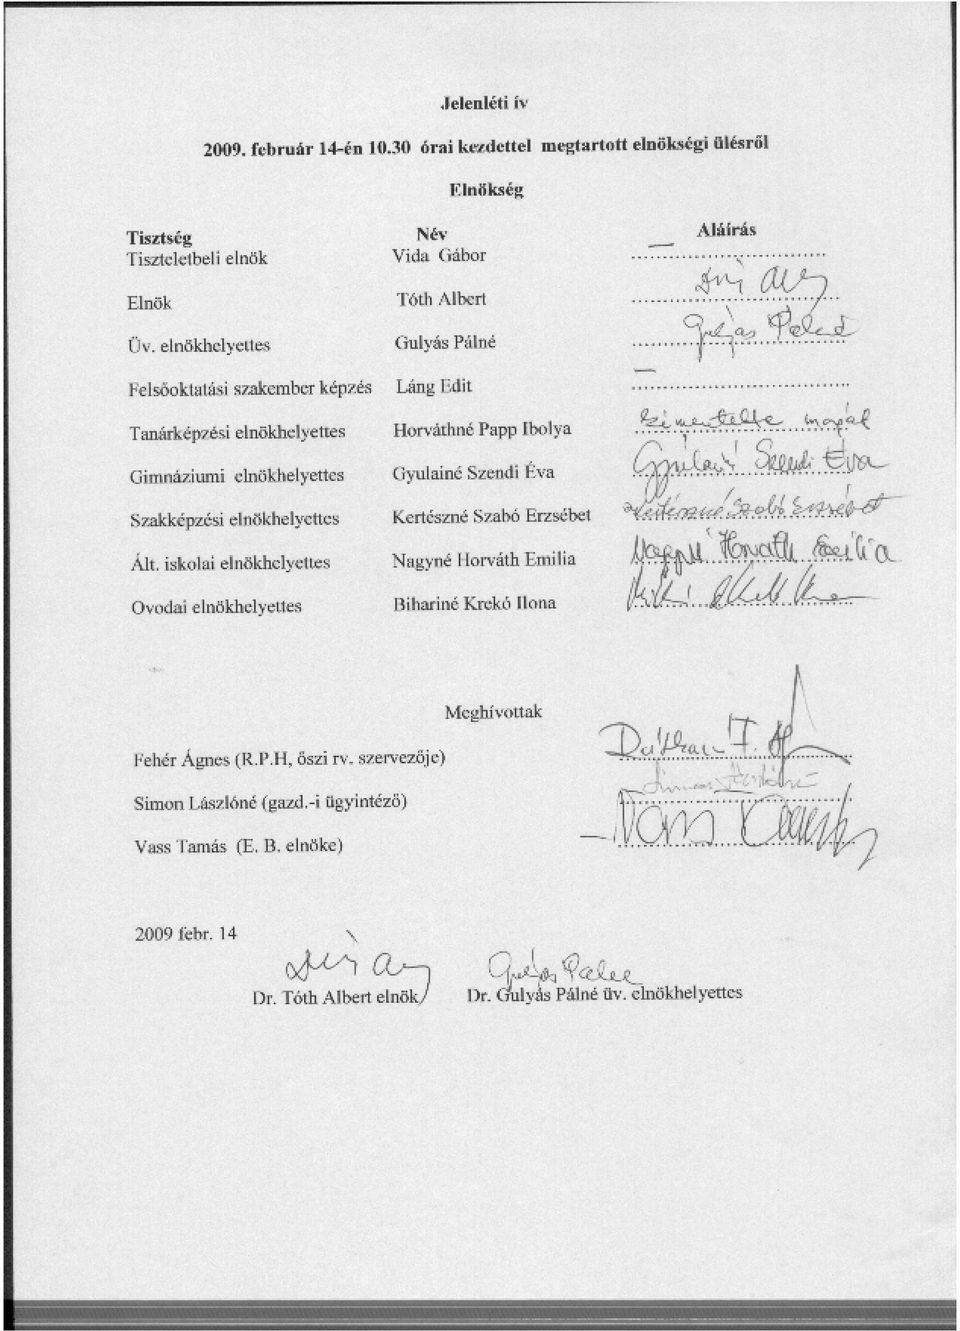 Jelenléti ív
2009. február 14-én 10.30 órai kezdettel megtartott elnökségi ülésről
Elnökség
Tisztség Név Aláírás
Tiszteletbeli elnök Vida Gábor
Elnök Tóth Albert
Üv. elnökhelyettes Gulyás Pálné Gulyás Pálné
Felsőoktatási szakember képzés Láng Edit
Tanárképzési elnökhelyettes Horváthné Papp Ibolya kimentette magát
Gimnáziumi elnökhelyettes Gyulainé Szendi Éva Gyulainé Szendi Éva
Szakképzési elnökhelyettes Kertészné Szabó Erzsébet Kertészné Szabó Erzsébet
Ált. iskolai elnökhelyettes Nagyné Horváth Emilia Nagyné Horváth Emilia
Ovodai elnökhelyettes Bihariné Krekó Ilona
Meghívottak
Fehér Ágnes (R.P.H, őszi rv. szervezője)
Simon Lászlóné (gazd.-i ügyintéző)
Vass Tamás (E. B. elnöke) Vass Tamás
2009 febr. 14
Gulyás Pálné
Dr. Tóth Albert elnök Dr. Gulyás Pálné üv. elnökhelyettes